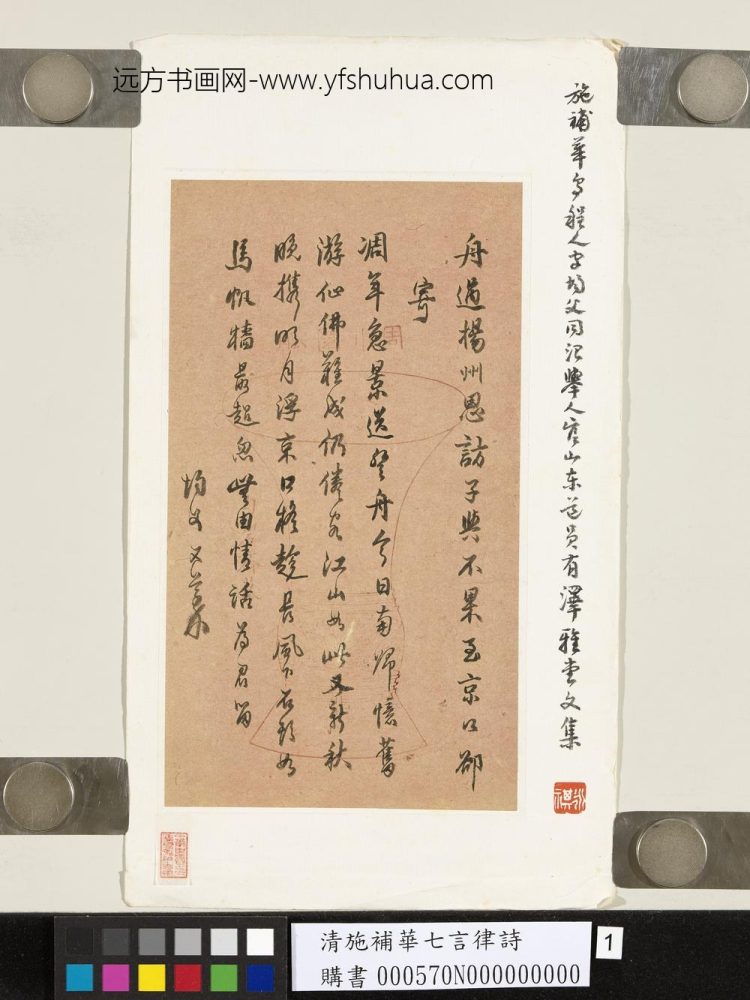 远方书画网-www.yfshuhua.com
施補華烏程人字均父同治舉人官山东道員有澤雅堂文集
舟過揚州思訪子與不果至京口卻
寄
凋年急景送登舟今日南歸憶舊
游仙佛難成仍倦客江山如此又新秋
晚攜明月浮京口擬趁長風下石頭如
馬帆檣最超忽無由情話為君留
均父
清施補華七言律詩
購書 000570N000000000
1